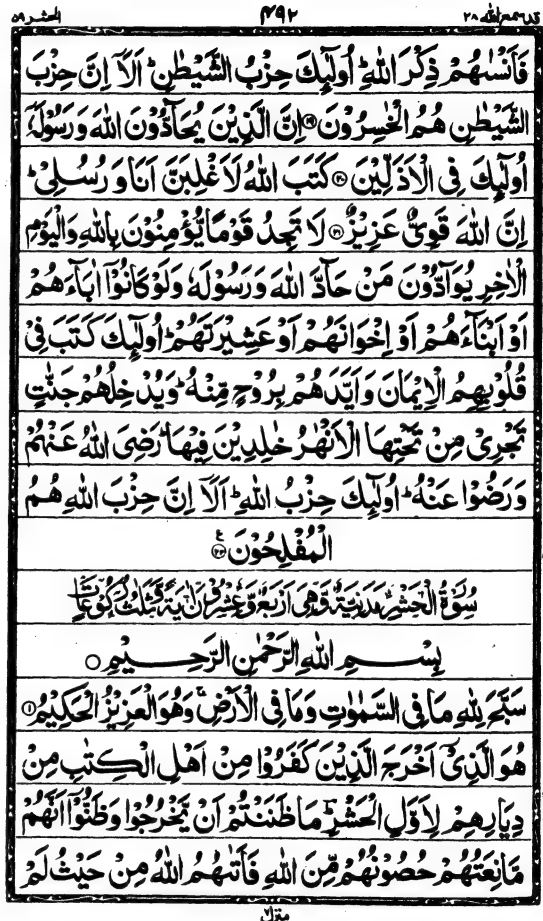 قد سمع الله ٢٨ ۴۹۲ الحشر ۵۹
فَاَنْسٰىهُمْ ذِكْرَ اللّٰهِؕ اُولٰٓئِكَ حِزْبُ الشَّيْطٰنِؕ اَلَاۤ اِنَّ حِزْبَ
الشَّيْطٰنِ هُمُ الْخٰسِرُوْنَ ۝۱۹ اِنَّ الَّذِيْنَ يُحَآدُّوْنَ اللّٰهَ وَرَسُوْلَهٗۤ
اُولٰٓئِكَ فِى الْاَذَلِّيْنَ ۝۲۰ كَتَبَ اللّٰهُ لَاَغْلِبَنَّ اَنَا وَرُسُلِىْؕ
اِنَّ اللّٰهَ قَوِىٌّ عَزِيْزٌ ۝۲۱ لَا تَجِدُ قَوْمًا يُّؤْمِنُوْنَ بِاللّٰهِ وَالْيَوْمِ
الْاٰخِرِ يُوَآدُّوْنَ مَنْ حَآدَّ اللّٰهَ وَرَسُوْلَهٗ وَلَوْ كَانُوْۤا اٰبَآءَهُمْ
اَوْ اَبْنَآءَهُمْ اَوْ اِخْوَانَهُمْ اَوْ عَشِيْرَتَهُمْؕ اُولٰٓئِكَ كَتَبَ فِىْ
قُلُوْبِهِمُ الْاِيْمَانَ وَاَيَّدَهُمْ بِرُوْحٍ مِّنْهُؕ وَيُدْخِلُهُمْ جَنّٰتٍ
تَجْرِىْ مِنْ تَحْتِهَا الْاَنْهٰرُ خٰلِدِيْنَ فِيْهَاؕ رَضِىَ اللّٰهُ عَنْهُمْ
وَرَضُوْا عَنْهُؕ اُولٰٓئِكَ حِزْبُ اللّٰهِؕ اَلَاۤ اِنَّ حِزْبَ اللّٰهِ هُمُ
الْمُفْلِحُوْنَ ۝۲۲ ع
سُوْرَةُ الْحَشْرِ مَدَنِيَّةٌ وَّهِىَ اَرْبَعٌ وَّعِشْرُوْنَ اٰيَةً وَّثَلٰثُ رُكُوْعَاتٍ
بِسْمِ اللّٰهِ الرَّحْمٰنِ الرَّحِيْمِ ○
سَبَّحَ لِلّٰهِ مَا فِى السَّمٰوٰتِ وَمَا فِى الْاَرْضِۚ وَهُوَ الْعَزِيْزُ الْحَكِيْمُ ۝۱
هُوَ الَّذِىْۤ اَخْرَجَ الَّذِيْنَ كَفَرُوْا مِنْ اَهْلِ الْكِتٰبِ مِنْ
دِيَارِهِمْ لِاَوَّلِ الْحَشْرِؔؕ مَا ظَنَنْتُمْ اَنْ يَّخْرُجُوْا وَظَنُّوْۤا اَنَّهُمْ
مَّانِعَتُهُمْ حُصُوْنُهُمْ مِّنَ اللّٰهِ فَاَتٰىهُمُ اللّٰهُ مِنْ حَيْثُ لَمْ
منزل ۷